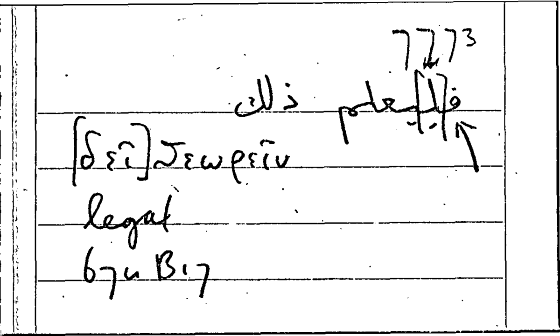 7773
ف[ل]يعلم ذلك
[δεῖ] θεωρεῖν
legal
B17